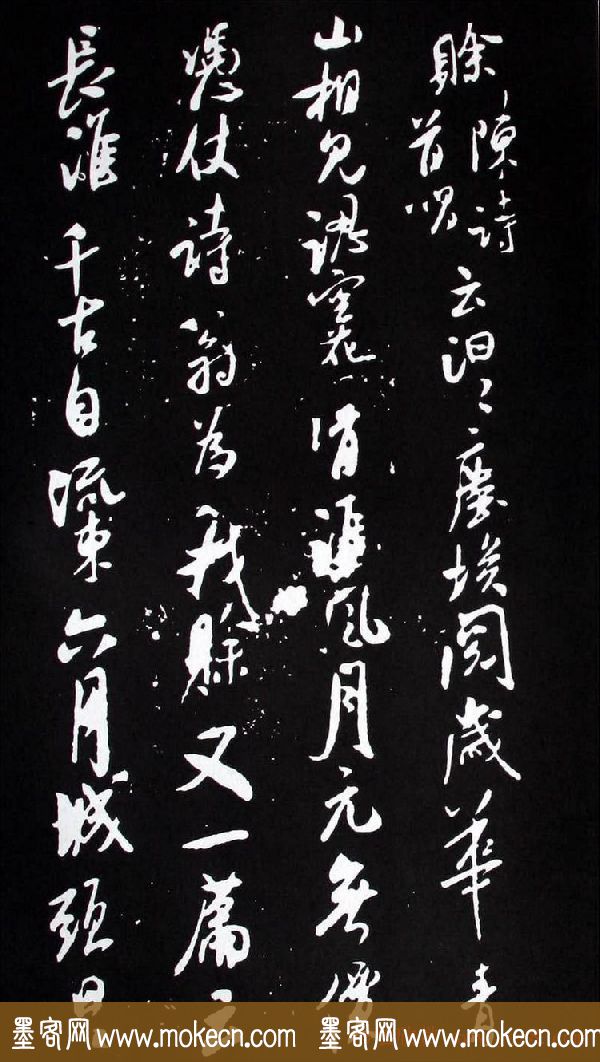 賒陳詩
首唱
云汩〻塵埃閱歲華青
山相見空花淮風月元無
憑仗詩翁為我賒又一篇云
長淮千古自流東六月城頭
墨客网 www.mokecn.com 墨客网 www.mokecn.com